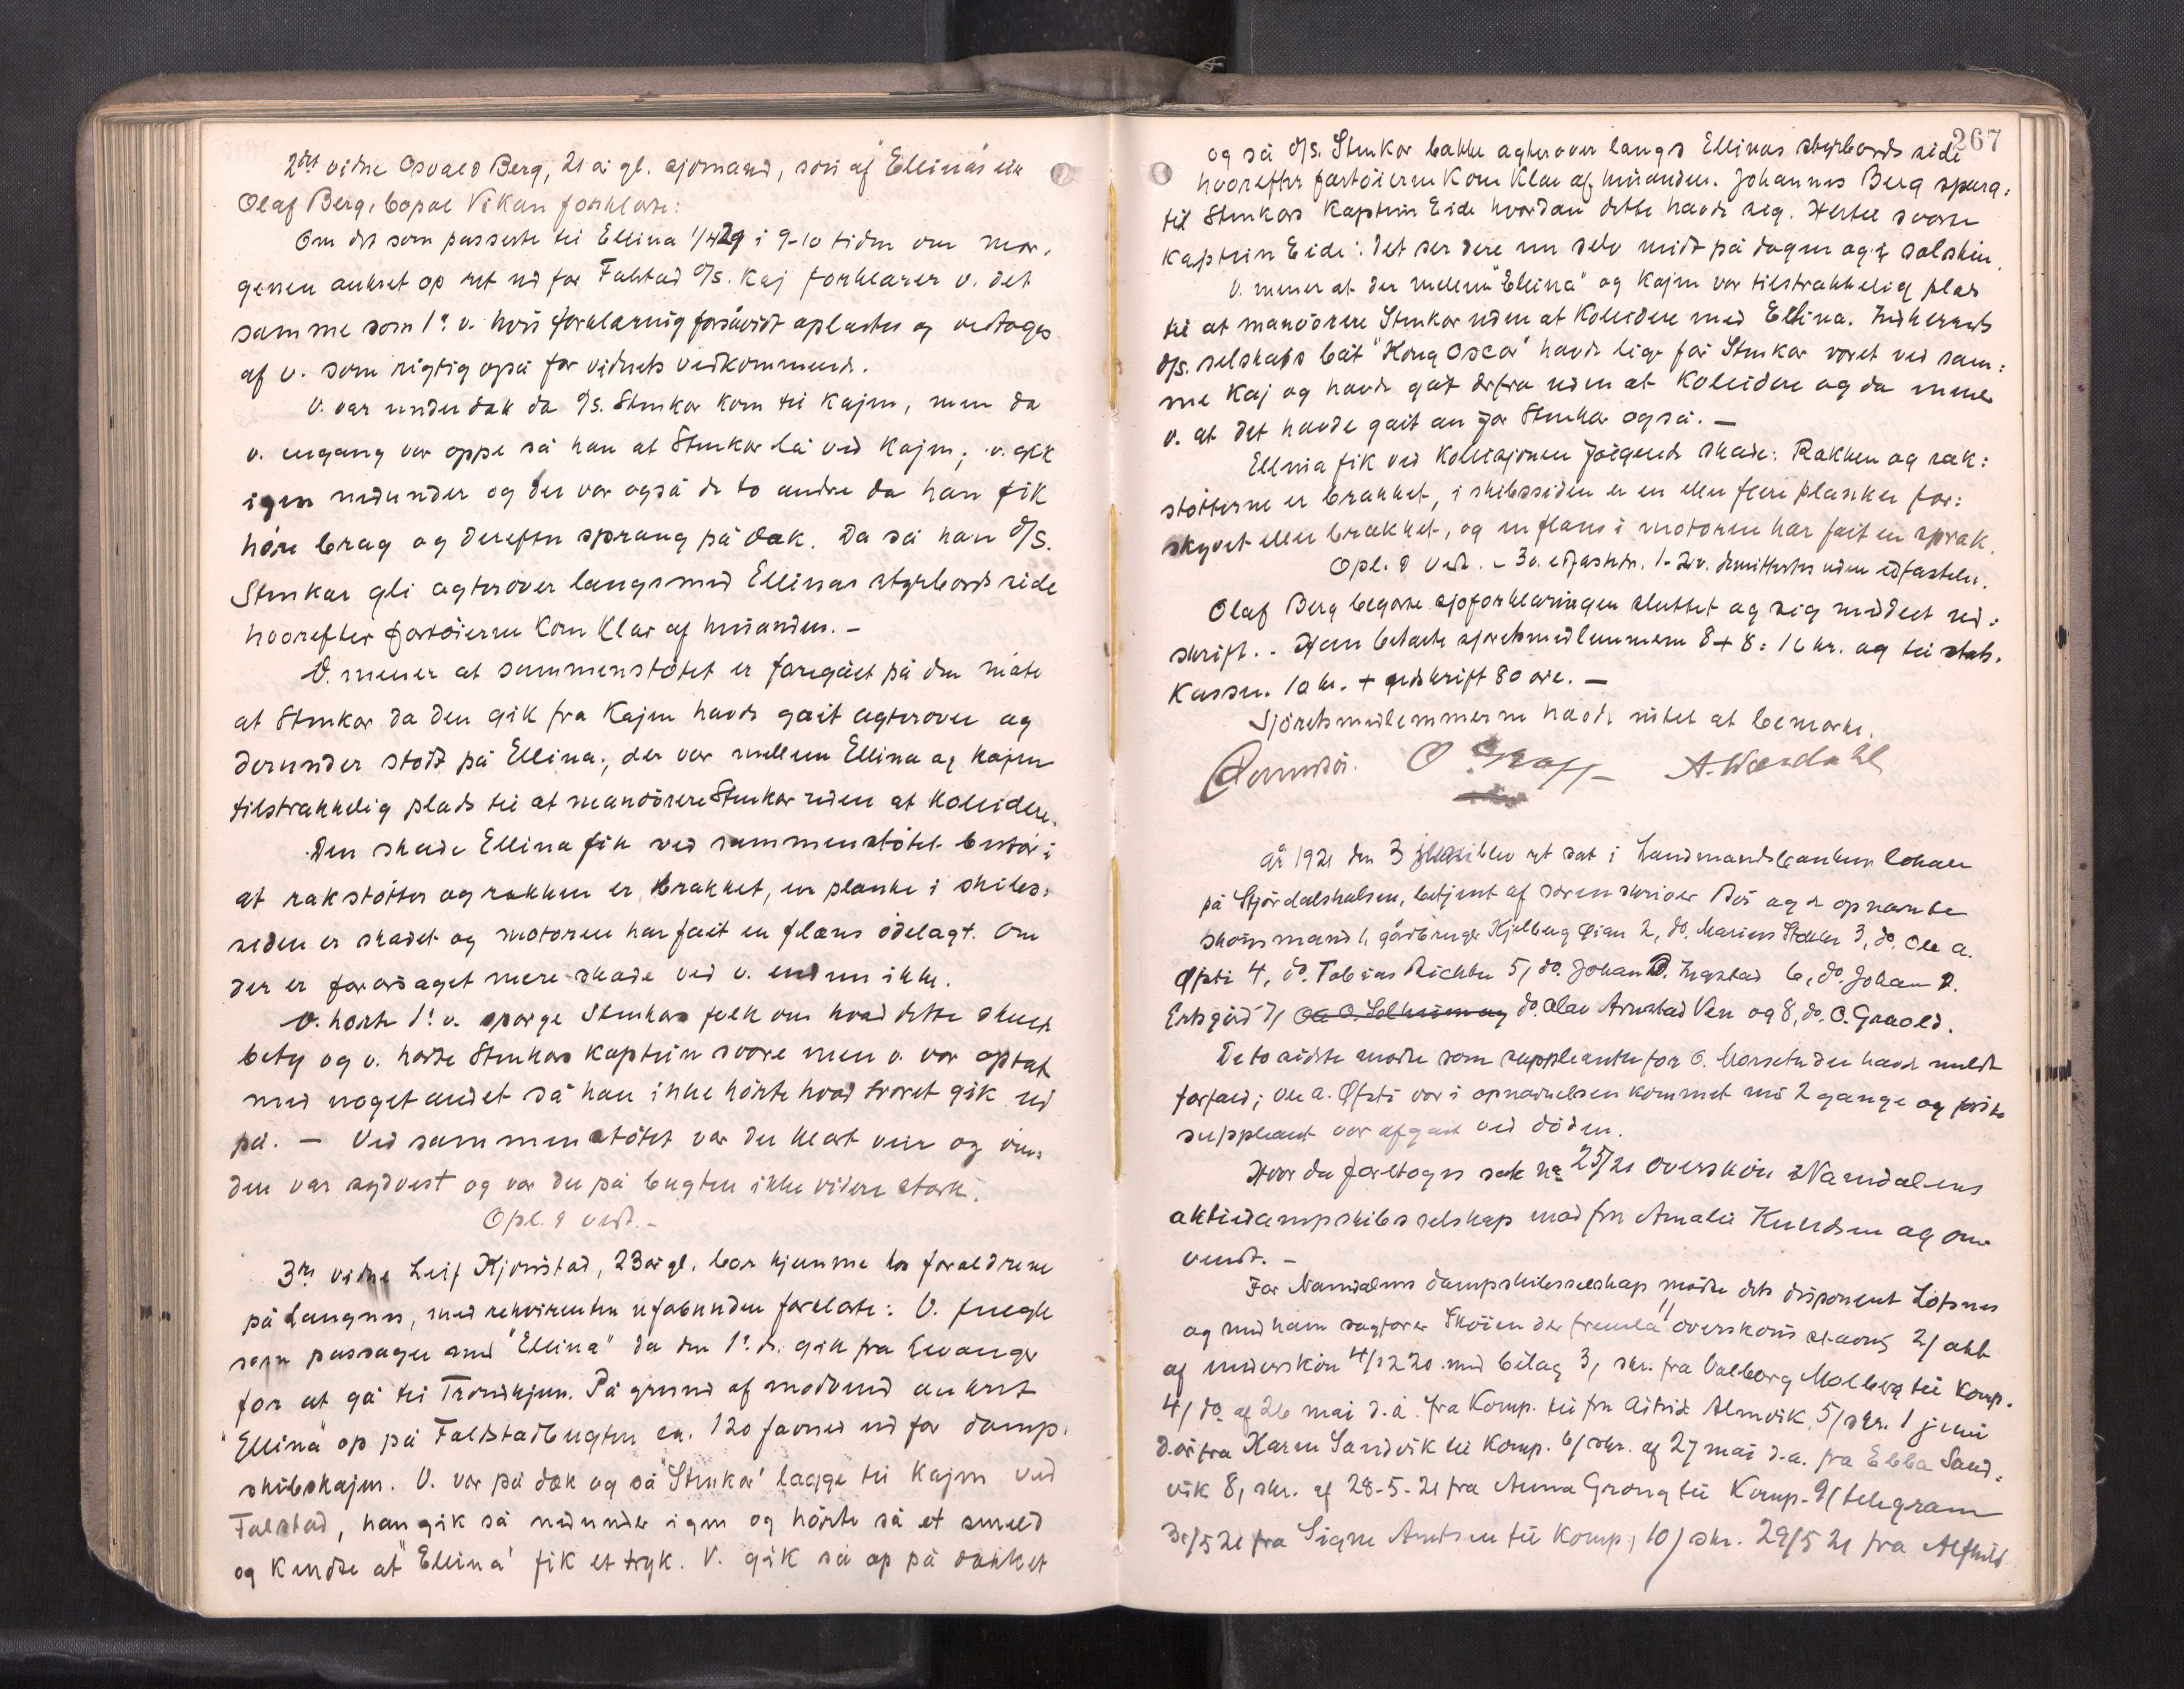 2det vidne Osvald Berg, 21 år gl. sjømand, søn af "Ellina's eier
Olaf Berg, bopæl Vikan forklarte:
Om det som passerte til Ellina 1/4 21 i 9-10 tiden om mor-
genen ankret op ret ud for Falstad d/s. kaj forklarer v. det
samme som 1ste v. hvis forklaring forsåvidt oplæstes og vedtoges
af v. som rigtig også for vidnets vedkommende.
V. var under dæk da d/s. Stenkær kom til kajen, men da
v. engang var oppe så han at Stenkær lå ved kajen; v. gik
igen nedunder og der var også de to andre da han fik
høre brag og derefter sprang på dæk. Da så han d/s.
Stenkær gli agterover langs med Ellinas styrbords side
hvorefter fartøierne kom klar af hinanden. -
V. mener at sammenstøtet er foregået på den måte
at Stenkær da den gik fra kajen havde gåit agterover og
derunder støtt på Ellina; der var mellem Ellina og kajen
tilstrækkelig plads til at manøvrere Stenkær uden at kollidere.
Den skade Ellina fik ved sammenstøtet består i
at rækstøtter og rækken er brækket, en planke i skibs-
siden er skadet og motoren har fåit en flens ødelagt. Om
der er forårsaget mere skade ved v. endnu ikke.
V. hørte 1ste v. spørge Stenkærs folk om hvad dette skulde
bety og v. hørte Stenkærs kaptein svare men v. var optat
med noget andet så han ikke hørte hvad svaret gik ud
på. - Ved sammenstøtet var der klart veir og vin-
den var sydvest og var der på bugten ikke videre sterk.
Opl. & vedt. -
3die vidne Leif Kjønstad, 23 år gl. bor hjemme hos forældrene
på Langnes, med rekvirenten ubeslægtet forklarte: V. fulgte
som passager med "Ellina" da den 1ste ds. gik fra Levanger
for at gå til Trondhjem. På grund af modvind ankret
"Ellina" op på Falstadbugten ca. 120 favner ud for damp-
skibskajen. V. var på dæk og så "Stenkær" lægge til kajen ved
Falstad, han gik så nedunder igen og hørte så et smeld
og kendte at "Ellina" fik et tryk. V. gik så op på dækket
267
og så d/s. Stenkær bakke agterover langs Ellinas styrbords side
hvorefter fartøierne kom klar af hinanden. Johannes Berg spurg-
te Stenkærs kaptein Eide hvordan dette havde sig. Hertil svarte
kaptein Eide: Det ser dere nu selv midt på dagen og i solskin.
V. mener at der mellem "Ellina" og kajen var tilstrækkelig plads
til at manøvrere Stenkær uden at kollidere med Ellina. Indherreds
d/s. selskabs båt "Kong Oscar" havde lige før Stenkær været ved sam-
me kaj og havde gåt derfra uden at kollidere og da mener
v. at det havde gåit an for Stenkær også. -
Ellina fik ved kollisjonen følgende skade: Rækken og ræk-
støtterne er brækket, i skibssiden er en eller flere planker for-
skyvet eller brækket, og en flens i motoren har fåit en spræk.
Opl. & vedt. - 3 v. edfæstedes. 1-2 v. demittertes uden edfæstelse.
Olaf Berg begærte sjøforklaringen sluttet og sig meddelt ud-
skrift. - Han betalte sjøretsmedlemmerne 8 + 8 = 16 kr. og til stats-
kassen 10 kr. + gjenskrift 80 øre. -
Sjøretsmedlemmerne havde intet at bemærke.
A. Wærdahl
År 1921 den 3 juni blev ret sat i Landmandsbankens lokale
på Stjørdalshalsen, betjent af sorenskriver Bøe og de opnævnte
skønsmænd 1, gårdbruger Kjelberg Øian 2, do. Marius Stokke 3, do. Ole A.
Øfsti 4, do. Tobias Richter 5, do. Johan D. Ingstad 6, do. Johan P.
Ertsgård 7, do. Olav Arnstad Ven og 8, do. O. Graold.
De to sidste møtte som suppleanter for O. Morset der havde meldt
forfald; Ole A. Øfsti var i opnævnelsen kommet ind 2 gange og første
suppleant var afgået ved døden.
Hvor da foretoges sak no 25/21 overskøn Namdalens
aktiedampskibsselskap mod fru Amalie Knudsen og om-
vendt. -
For Namdalens dampskibsselskap møtte dets disponent Løfsnes
og med ham sagfører Skøien der fremla 1/ overskønsstævning 2/ akt
af underskøn 4/12 20 med bilag 3, skr. fra Valborg Molberg til Komp.
4/ do. af 26 mai d.å. fra Komp. til frk. Astrid Almvik, 5/ skr. 1 juni
d.å. fra Karen Sandvik til Komp. 6/ skr. af 27 mai d.å. fra Ebba Sand-
vik 8, skr. af 28-5-21 fra Anna Grong til Komp. 9/ telegram
31/5 21 fra Signe Arntsen til Komp, 10/ skr. 29/5 21 fra Alfhild